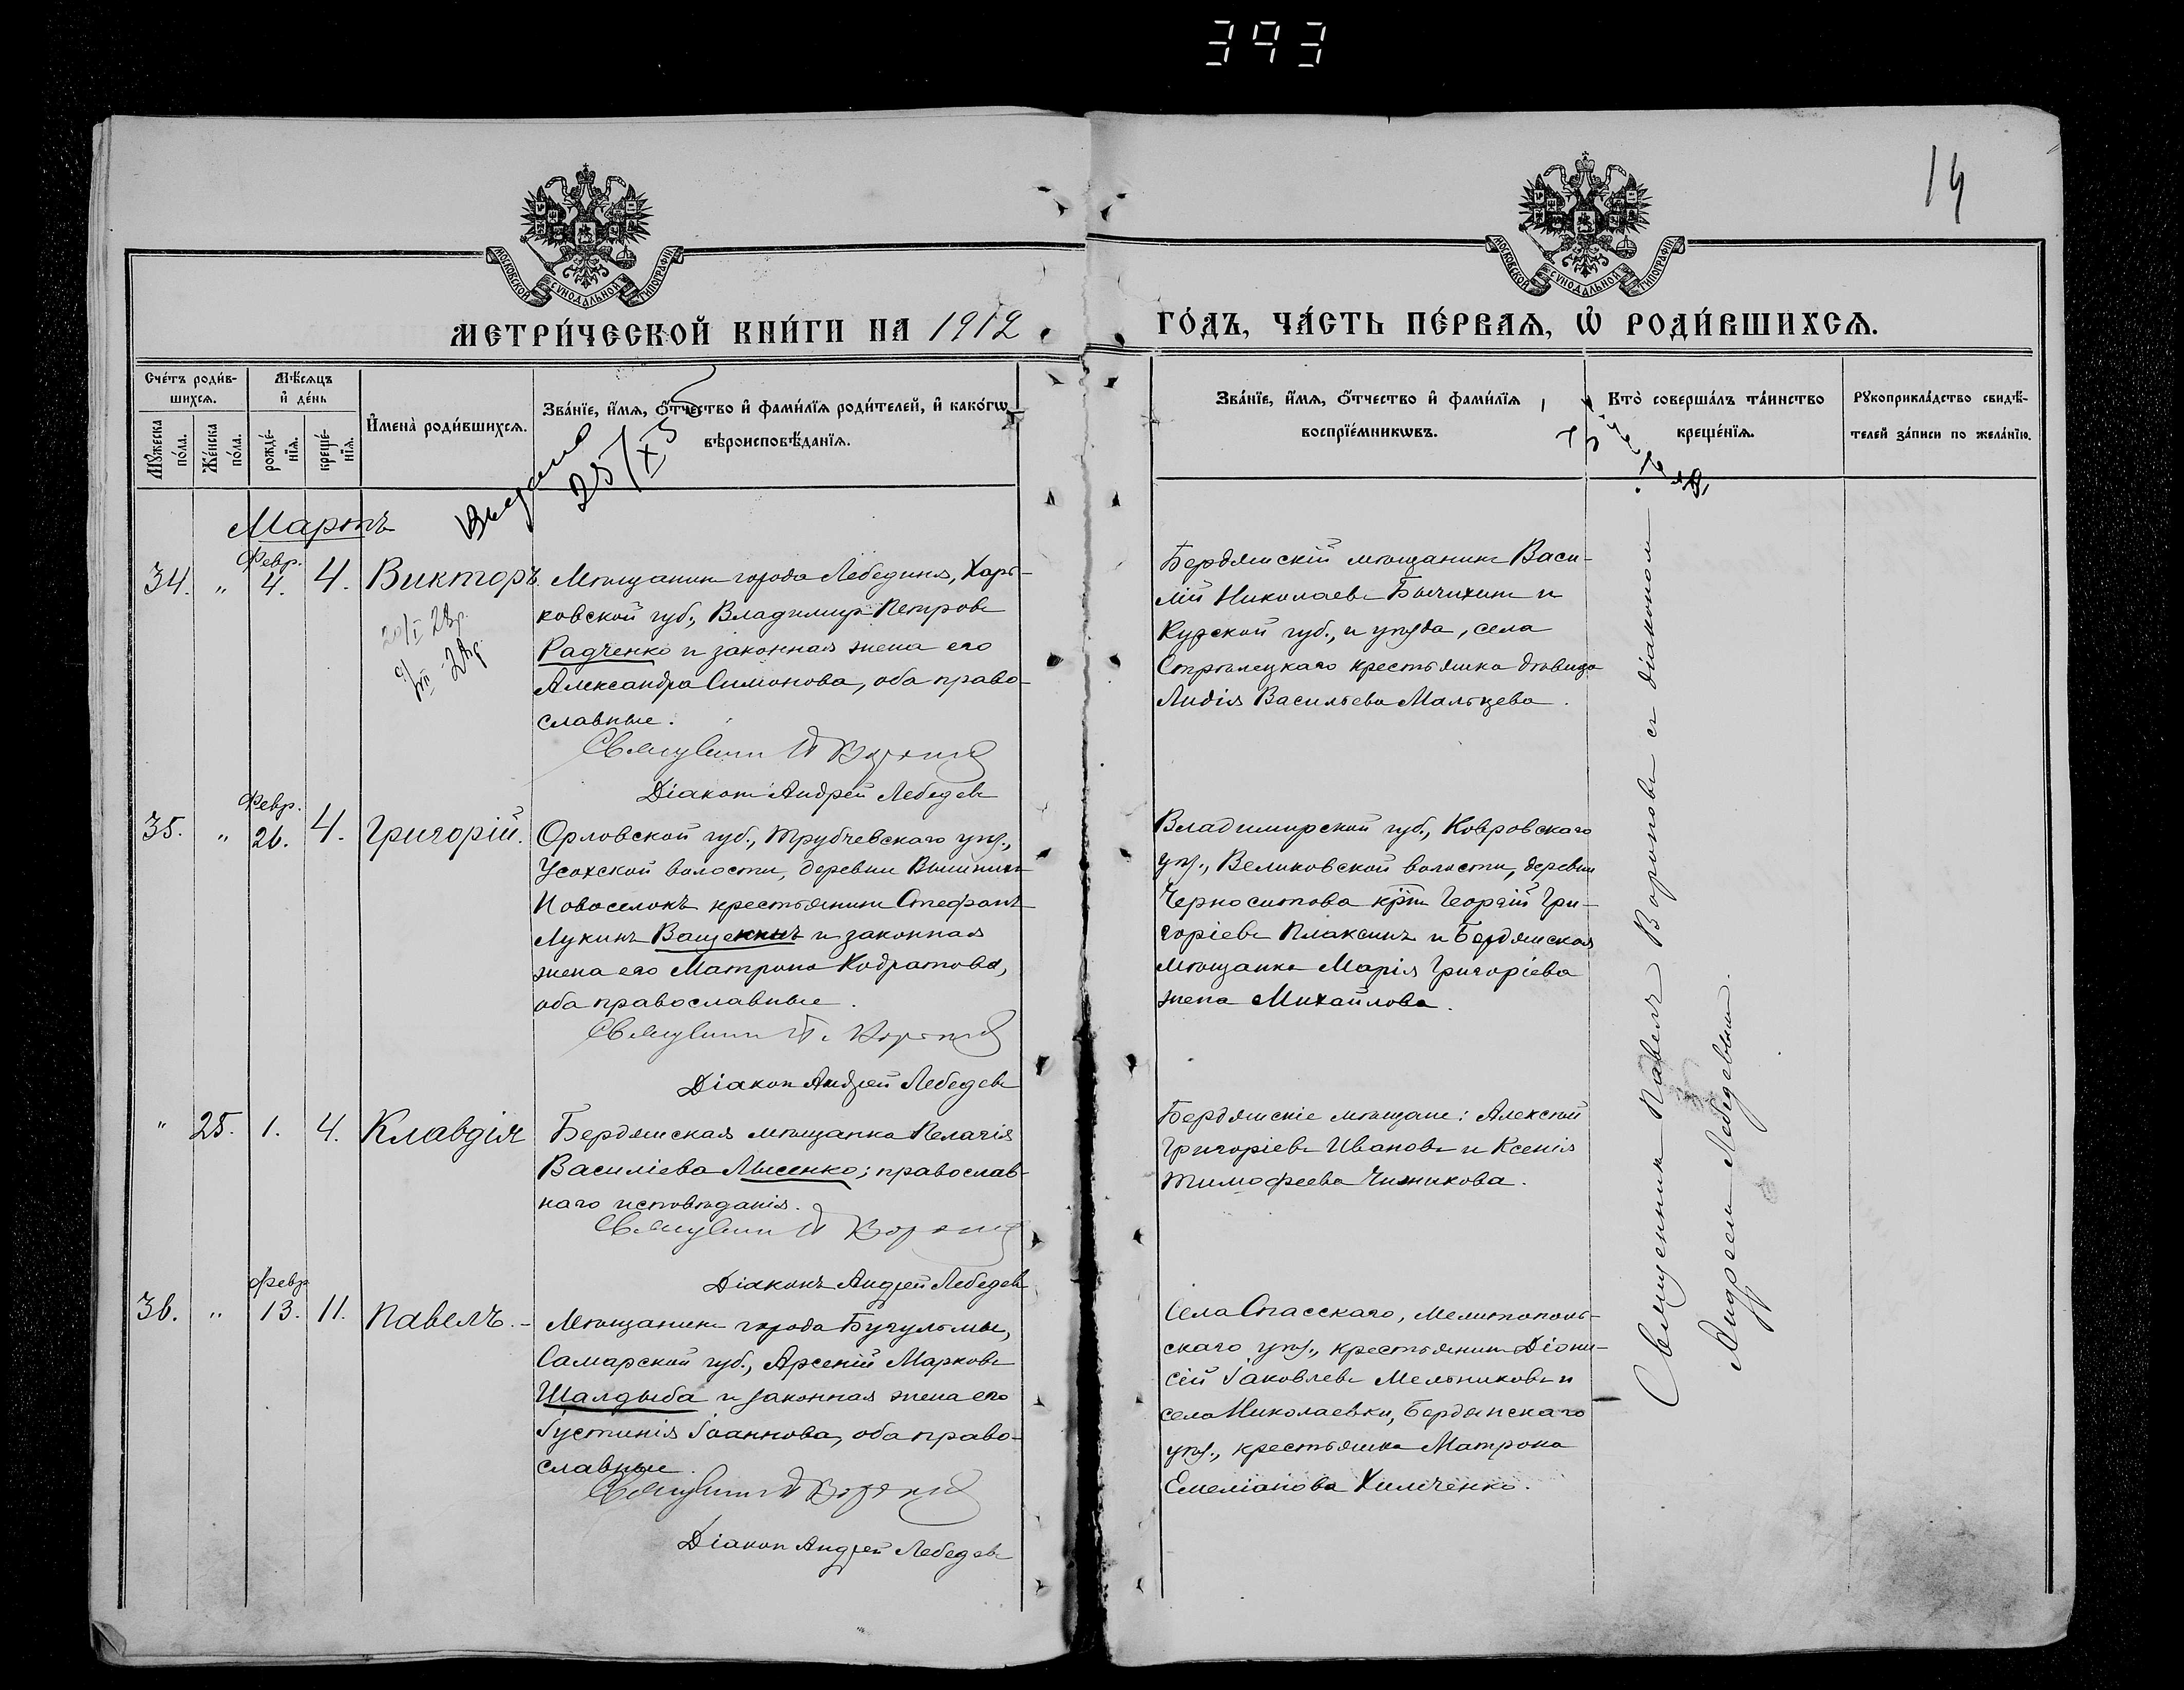 393
14
МОСКОВСКОЙ СѴНОДАЛЬНОЙ ТИПОГРАФІИ
МОСКОВСКОЙ СѴНОДАЛЬНОЙ ТИПОГРАФІИ
МЕТРИ́ЧЕСКОЙ КНИ́ГИ НА 1912
ГО́ДЪ, ЧА́СТЬ ПЕ́РВАѦ, Ѡ҆ РОДИ́ВШИХСѦ.
Сче́тъ роди́в-
шихсѧ.
Мꙋ́жеска по́ла.
Же́нска по́ла.
Мѣ́сѧцъ
и҆ де́нь
рожде́-
нїѧ.
креще́-
нїѧ.
И҆мена̀ роди́вшихсѧ.
Зва́нїе, и҆́мѧ, ѻ҆́тчество и҆ фами́лїѧ роди́телей, и҆ како́гѡ
вѣроисповѣ́данїѧ.
Зва́нїе, и҆́мѧ, ѻ҆́тчество и҆ фами́лїѧ
воспрїе́мникѡвъ.
Кто̀ соверша́лъ та́инство
креще́нїѧ.
Рꙋкоприкла́дство свидѣ́-
телей за́писи по жела́нїю.
25/XI
Мартъ
34. " Февр. 4. 4. Викторъ.
Мѣщанинъ города Лебедина, Харь-
ковской губ., Владимиръ Петровъ
Радченко и законная жена его
Александра Симонова, оба право-
славные.
Священникъ П Вороновъ
Діаконъ Андрей Лебедевъ
Бердянскій мѣщанинъ Васи-
лій Николаевъ Бычихинъ и
Курской губ., и уѣзда, села
Стрѣлецкаго крестьянка дѣвица
Лидія Васильева Мальцева.
35. " Февр. 26. 4. Григорій.
Орловской губ., Трубчевскаго уѣз.,
Усохской волости, деревни
Новоселокъ крестьянинъ Стефанъ
Лукинъ Ващенкинъ и законная
жена его Матрона Кодратова,
оба православные.
Священникъ П. Вороновъ
Діаконъ Андрей Лебедевъ
Владимирской губ., Ковровскаго
уѣз., Великовской волости, деревни
Черноситова кр̃нъ Георгій Гри-
горіевъ Плаксинъ и Бердянская
мѣщанка Марія Григоріева
жена Михайлова.
" 25. 1. 4. Клавдія
Бердянская мѣщанка Пелагія
Василіева Лысенко; православ-
наго исповѣданія.
Священникъ П Вороновъ
Діаконъ Андрей Лебедевъ
Бердянскіе мѣщане: Алексѣй
Григоріевъ Ивановъ и Ксенія
Тимофеева Чижикова.
36. " февр 13. 11. Павелъ.
Мѣщанинъ города Бугульмы,
Самарской губ., Арсеній Марковъ
Шалдыба и законная жена его
Іустинія Іоаннова, оба право-
славные.
Священникъ П Вороновъ
Діаконъ Андрей Лебедевъ
Села Спасскаго, Мелитополь-
скаго уѣз., крестьянинъ Діони-
сій Іаковлевъ Мельниковъ и
села Николаевки, Бердянскаго
уѣз., крестьянка Матрона
Емеліанова Химченко.
Священникъ Павелъ Вороновъ съ діакономъ
Андреемъ Лебедевымъ.